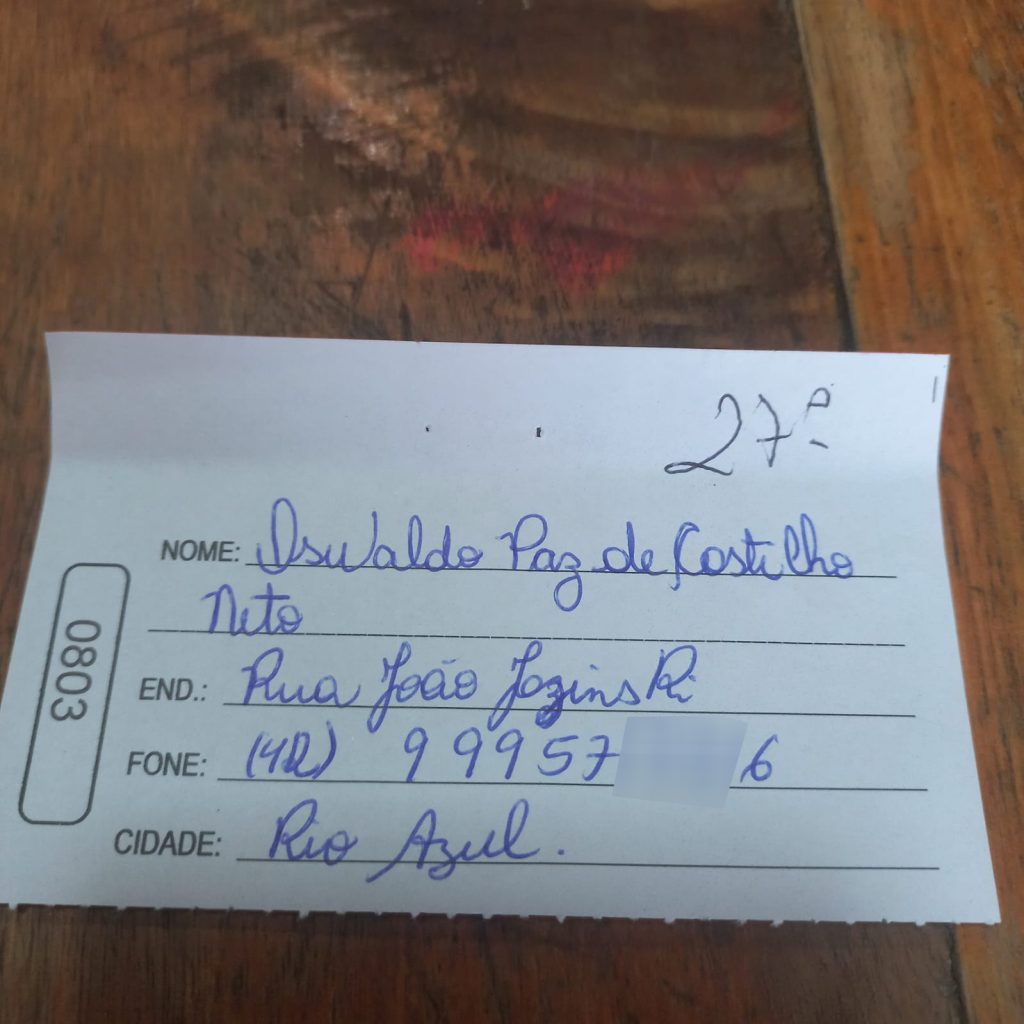 27º
NOME: Oswaldo Paz de Castilho
Neto
0803
END.: Rua João Jozinski
FONE: (42) 99957 6
CIDADE: Rio Azul.